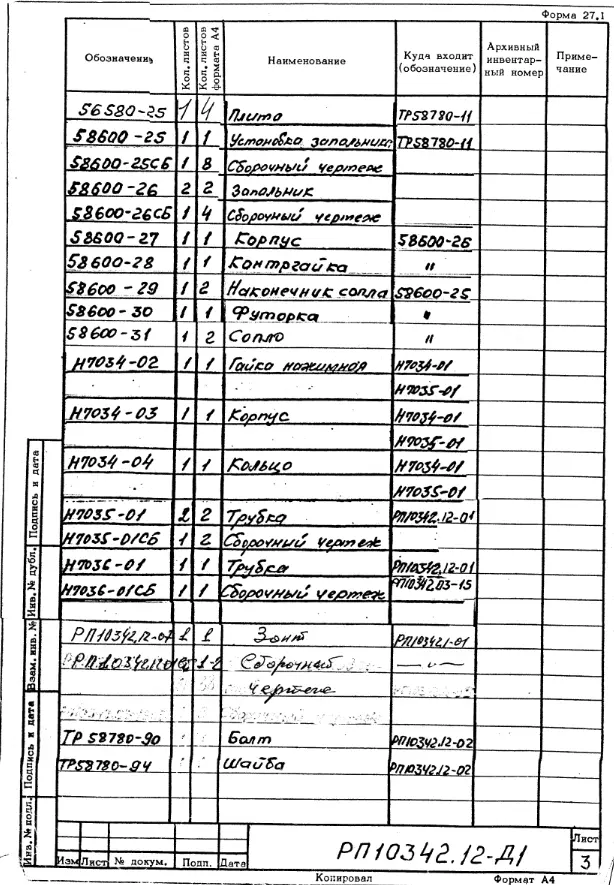 Форма 27.1
Обозначение Кол. листов Кол. листов формата А4 Наименование Куда входит (обозначение) Архивный инвентарный номер Примечание
56580-25 1 4 Плита ТР58780-11
58600-25 1 1 Установка запальник. ТР58780-11
58600-25СБ 1 8 Сборочный чертеж
58600-26 2 2 Запальник
58600-26СБ 1 4 Сборочный чертеж
58600-27 1 1 Корпус 58600-26
58600-28 1 1 Контргайка "
58600-29 1 2 Наконечник сопла 58600-25
58600-30 1 1 Футорка "
58600-31 1 2 Сопло "
Н7034-02 1 1 Гайка нажимная Н7034-01
Н7035-01
Н7034-03 1 1 Корпус Н7034-01
Н7035-01
Н7034-04 1 1 Кольцо Н7034-01
Н7035-01
Н7035-01 2 2 Трубка РП10342.12-01
Н7035-01СБ 1 2 Сборочный чертеж
Н7036-01 1 1 Трубка РП10342.12-01
Н7036-01СБ 1 1 Сборочный чертеж РП10342.03-15
РП10342.12-07 1 1 Зонт РП10342.1-01
Сборочный — " —
чертеж
ТР58780-90 Болт РП10342.12-02
ТР58780-94 Шайба РП10342.12-02
Инв. № подл.
Подпись и дата
Взам. инв. №
Инв. № дубл.
Подпись и дата
Изм Лист № докум. Подп. Дата
РП10342.12-Д1
Лист
3
Копировал Формат А4